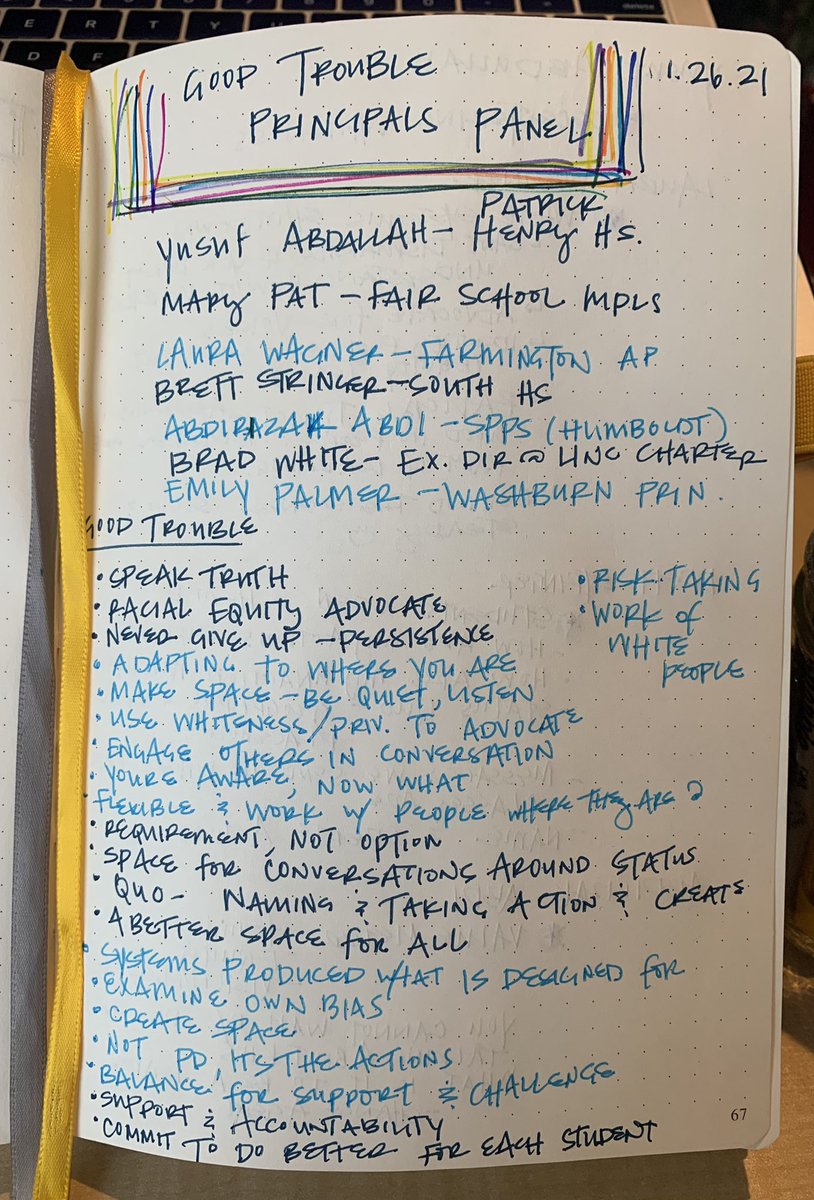 E R T Y U
D F
GOOD TROUBLE
PRINCIPALS PANEL
1.26.21
PATRICK
YUSUF ABDALLAH – HENRY HS.
MARY PAT – FAIR SCHOOL MPLS
LAURA WAGNER – FARMINGTON AP
BRETT STRINGER – SOUTH HS
ABDIRAZAK ABDI – SPPS (HUMBOLDT)
BRAD WHITE – EX. DIR @ LINC CHARTER
EMILY PALMER – WASHBURN PRIN.
GOOD TROUBLE
• SPEAK TRUTH
• RACIAL EQUITY ADVOCATE
• NEVER GIVE UP – PERSISTENCE
• ADAPTING TO WHERE YOU ARE
• MAKE SPACE – BE QUIET, LISTEN
• USE WHITENESS/PRIV. TO ADVOCATE
• ENGAGE OTHERS IN CONVERSATION
• YOURE AWARE, NOW WHAT
• FLEXIBLE & WORK W/ PEOPLE WHERE THEY ARE @
• REQUIREMENT, NOT OPTION
• SPACE FOR CONVERSATIONS AROUND STATUS
• QUO – NAMING & TAKING ACTION & CREATE
• A BETTER SPACE FOR ALL
• SYSTEMS PRODUCED WHAT IS DESIGNED FOR
• EXAMINE OWN BIAS
• CREATE SPACE
• NOT PD, ITS THE ACTIONS
• BALANCE FOR SUPPORT & CHALLENGE
• SUPPORT & ACCOUNTABILITY
• COMMIT TO DO BETTER FOR EACH STUDENT
• RISK TAKING
• WORK OF
WHITE
PEOPLE
67